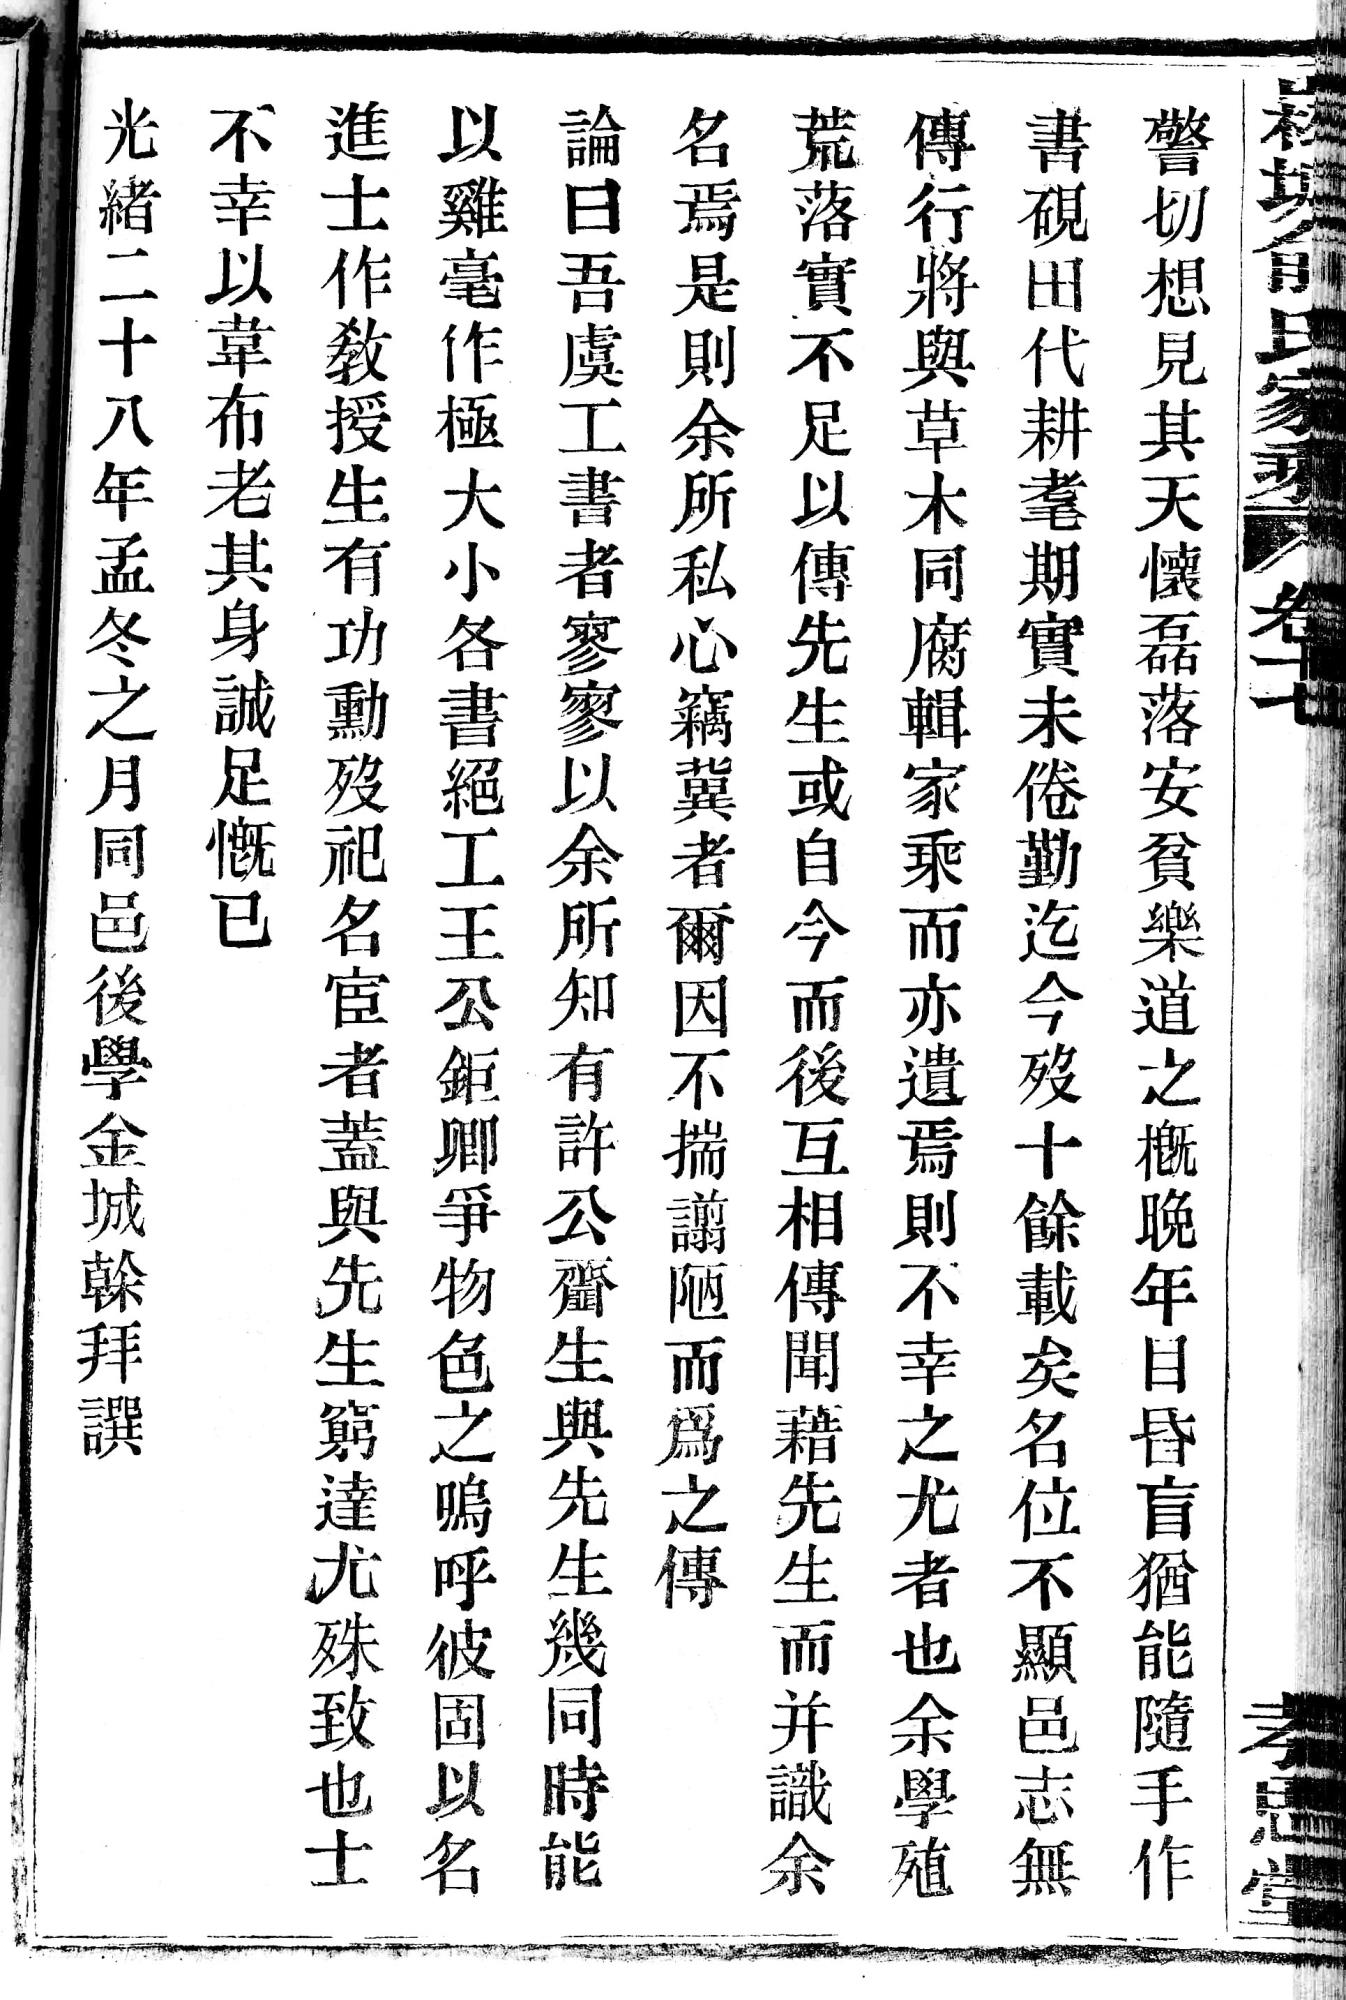 氏家乘 卷十七
孝思堂
警切想見其天懷磊落安貧樂道之概晚年目昏盲猶能隨手作
書硯田代耕耄期實未倦勤迄今歿十餘載矣名位不顯邑志無
傳行將與草木同腐輯家乘而亦遺焉則不幸之尤者也余學殖
荒落實不足以傳先生或自今而後互相傳聞藉先生而并識余
名焉是則余所私心竊冀者爾因不揣譾陋而爲之傳
論曰吾虞工書者寥寥以余所知有許公齋生與先生幾同時能
以雞毫作極大小各書絕工王公鉅卿爭物色之嗚呼彼固以名
進士作教授生有功勳歿祀名宦者蓋與先生窮達尤殊致也士
不幸以韋布老其身誠足慨已
光緒二十八年孟冬之月同邑後學金城榦拜譔